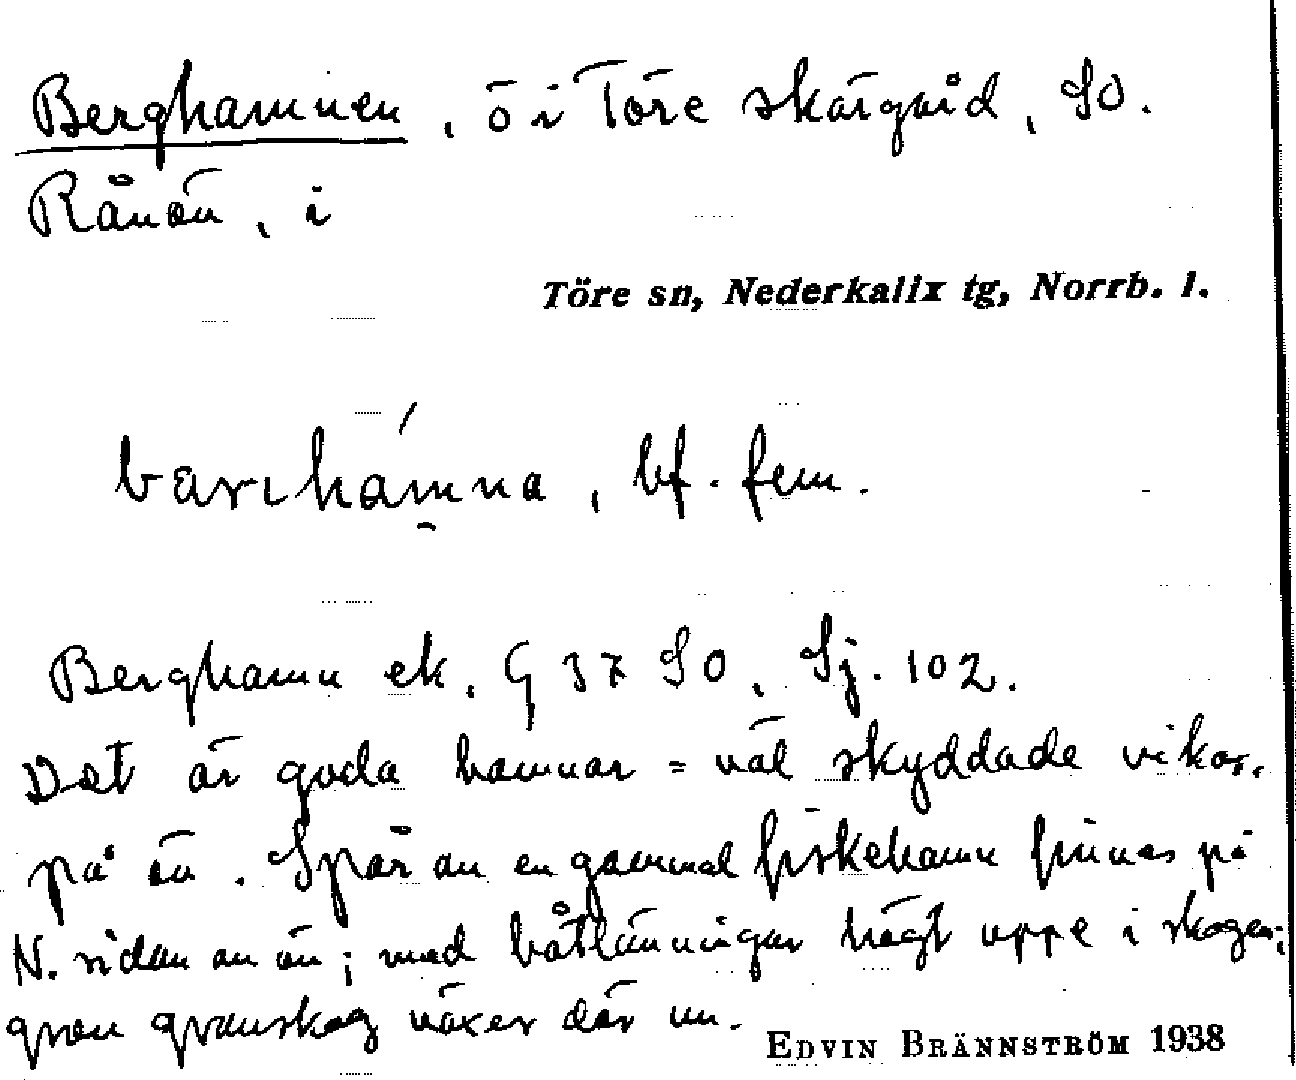 Berghamnen, ö i Töre skärgård, SO.
Rånön, i
Töre sn, Nederkalix tg, Norrb. l.
bærɩhám̮na, bf. fem.
Berghamn ek. G 37 SO, Sj. 102.
Det är goda hamnar = väl skyddade vikar,
på ön. Spår av en gammal fiskehamn finnas på
N. sidan av ön; med båtlänningar högt uppe i skogen;
grov granskog växer där nu.
EDVIN BRÄNNSTRÖM 1938